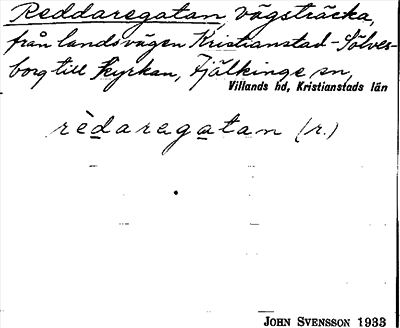 Reddaregatan, vägsträcka,
från landsvägen Kristianstad-Sölves-
borg till kyrkan, Fjälkinge sn,
Villands hd, Kristianstads län
rèdaregatan (r.)
JOHN SVENSSON 1933